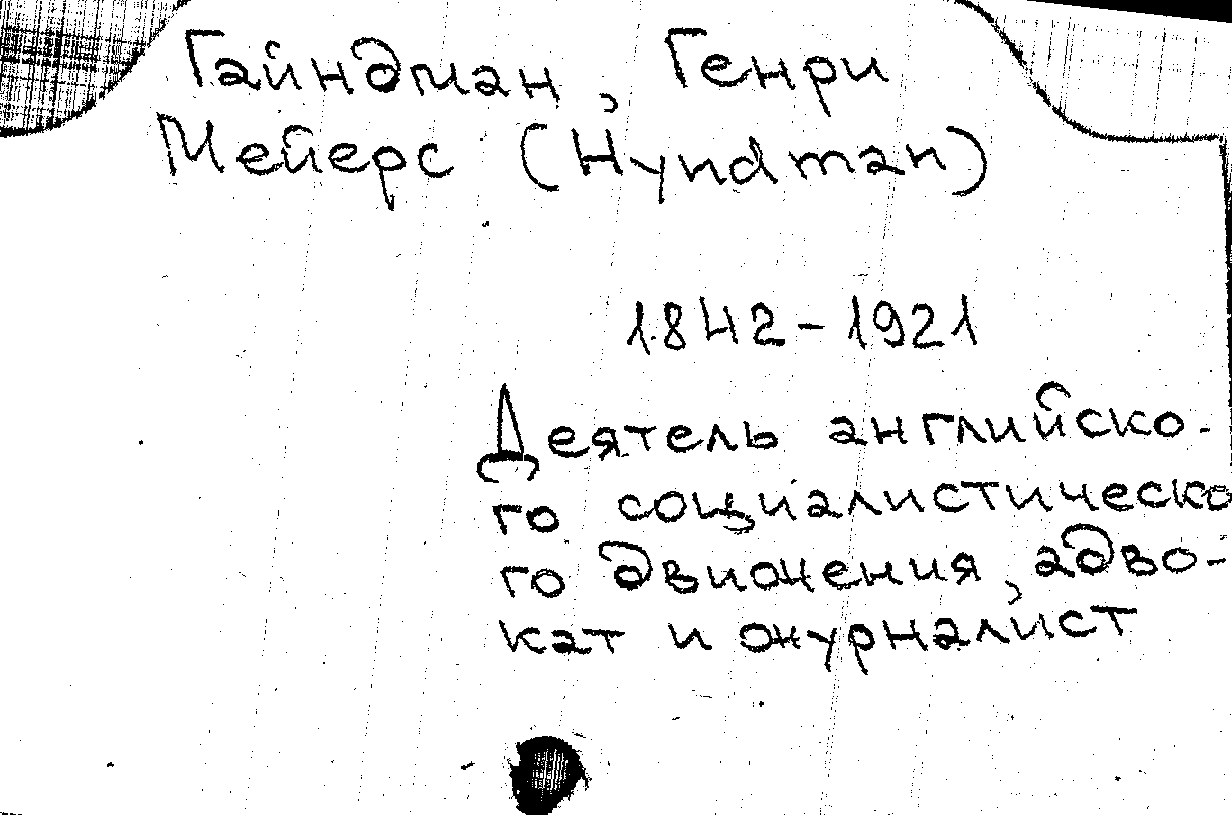 Гайндман, Генри
Мейерс (Hyndman)
1842-1921
Деятель английско-
го социалистическо
го движения, адво-
кат и журналист